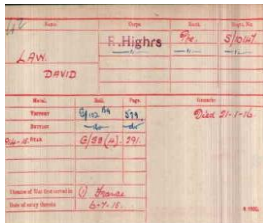 Name. Corps. Rank. Regtl. No.
R. Highrs Pte. S/10147
LAW.
DAVID
Medal. Roll. Page. Remarks
VICTORY 579. Died 21-1-16
BRITISH -do- -do-
STAR G/5B 291.
Theatre of War first served in (1) France
Date of entry therein 6-7-15.